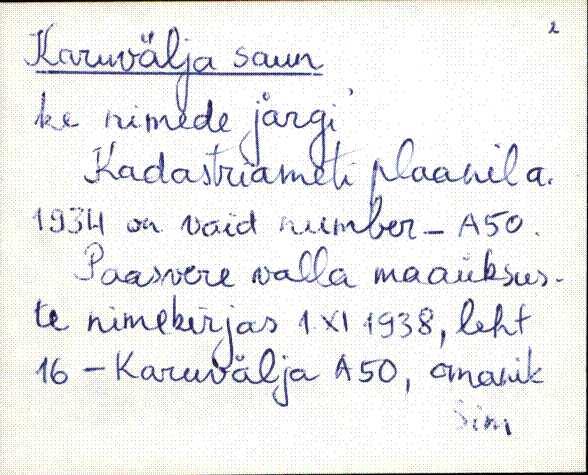 2
Karuvälja saun
ke nimede järgi
Kadastriameti plaanil a.
1934 on vaid number - A50.
Paasvere valla maaüksus-
te nimekirjas 1 XI 1938, leht
16 - Karuvälja A50, omanik
Sim